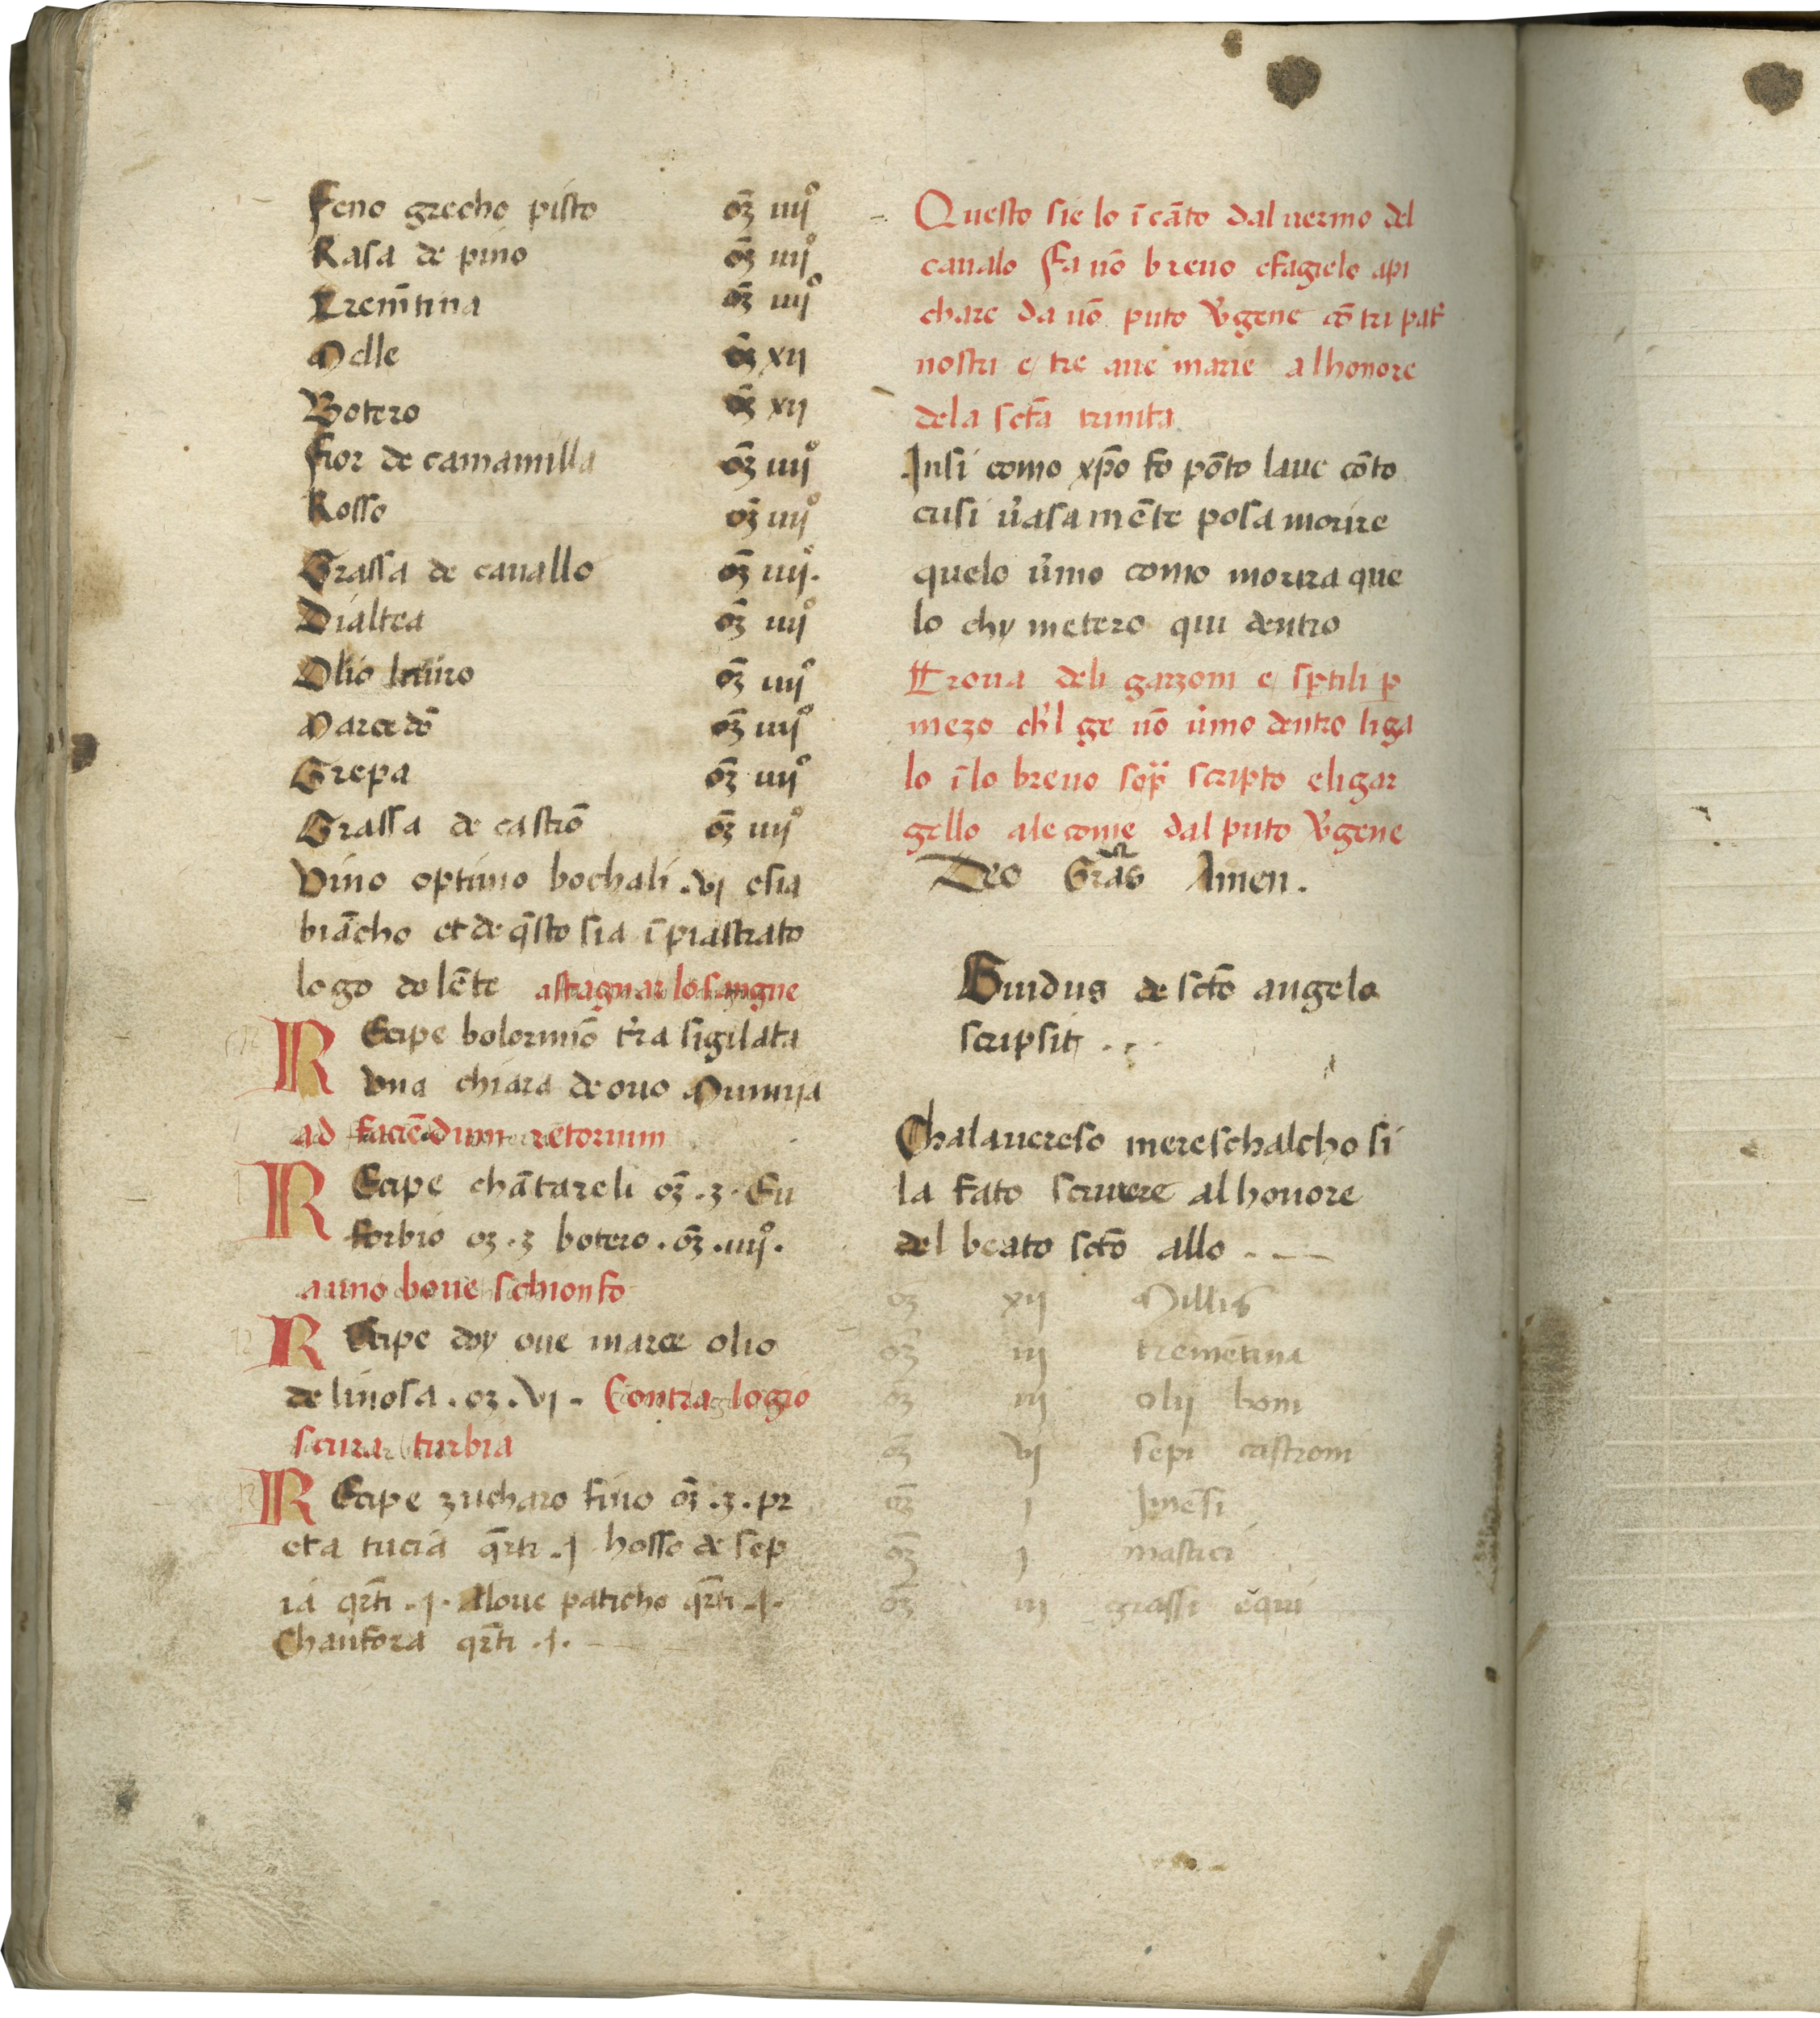 Feno grecho pisto oʒ̄ iiijº
Rasa de pino oʒ̄ iiijº
Trem̄tina oʒ̄ iiijº
Melle oʒ̄ xij
Botero oʒ̄ xij
Fior de camamilla oʒ̄ iiijº
Rosse oʒ̄ iiijº
Grassa de cauallo oʒ̄ iiijº.
Dialtea oʒ̄ iiijº
Olio oʒ̄ iiijº
oʒ̄ iiijº
Grepa oʒ̄ iiijº
Grassa de castrō oʒ̄ iiijº
Vino optimo bochali .vj esia
biācho et de q̄sto sia ī piastrato
logo dolēte astagnar lo sangue
REcipe bolormiō t'ra sigilata
Vna chiara de ouo Mumija
ad faciēdum retorium
REcipe chātareli oʒ̄ .ʒ. Eu
forbio oʒ .ʒ botero . oʒ̄ .iiijº.
auno boue schionfo
REcipe doy oue marce olio
de linosa . oʒ .vj. Contra logio
scura turbia
REcipe zucharo fino oʒ̄ .ʒ. pr
eta tucia q̄rti .j hosso de sep
ia qr̄ti .j. Aloue paticho qr̄ti .j.
Chanfora qr̄ti .j.
Questo sie lo īcāto dal uermo del
caualo Fa uō breuo efagielo api
chare da uō puto v'gene cō tri pat'
nostri e tre aue marie alhonore
dela sctā trinita
Insi como xp̄o fo pōto laue cōto
cusi u'asa mēte posa morire
quelo u'mo como morira que
lo chy metero qui dentro
Troua deli garzoni e sptili p
mezo ch'l ge uō u'mo dentro liga
lo īlo breuo sop̄ scripto eligar
gello ale come dal puto v'gene
Deo Grās Amen.
Guidus de sctō angelo
scripsit . . .
Chalauereso mereschalcho si
la fato scriuere al honore
del beato sctō allo . —
oʒ xij Millis
oʒ̄ iij tremētina
oʒ̄ iij olij boni
oʒ̄ vj sepi castroni
oʒ̄ j Incēsi
oʒ̄ j mastici
oʒ̄ iij grassi equi